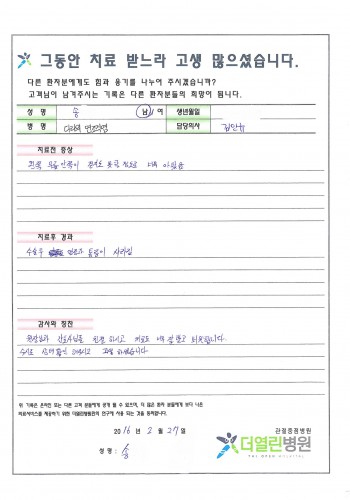 그동안 치료 받느라 고생 많으셨습니다.
다른 환자분에게도 힘과 용기를 나누어 주시겠습니까?
고객님이 남겨주시는 기록은 다른 환자분들의 희망이 됩니다.
성 명 송 남/여 생년월일
병 명 담당의사
치료전 증상
왼쪽 무릎 안쪽이 정도로 너무 아팠음
치료후 경과
수술후 통증이 사라짐
감사와 칭찬
친절 하시고 너무 잘
수술도
위 기록은 온라인 또는 다른 고객 분들에게 공개 될 수 있으며, 더 많은 환자 분들에게 보다 나은
의료서비스를 제공하기 위한 더열린병원만의 연구에 사용 되는 것을 동의합니다.
2016 년 2 월 27 일
성 명: 송
관절중점병원
더열린병원
THE OPEN HOSPITAL